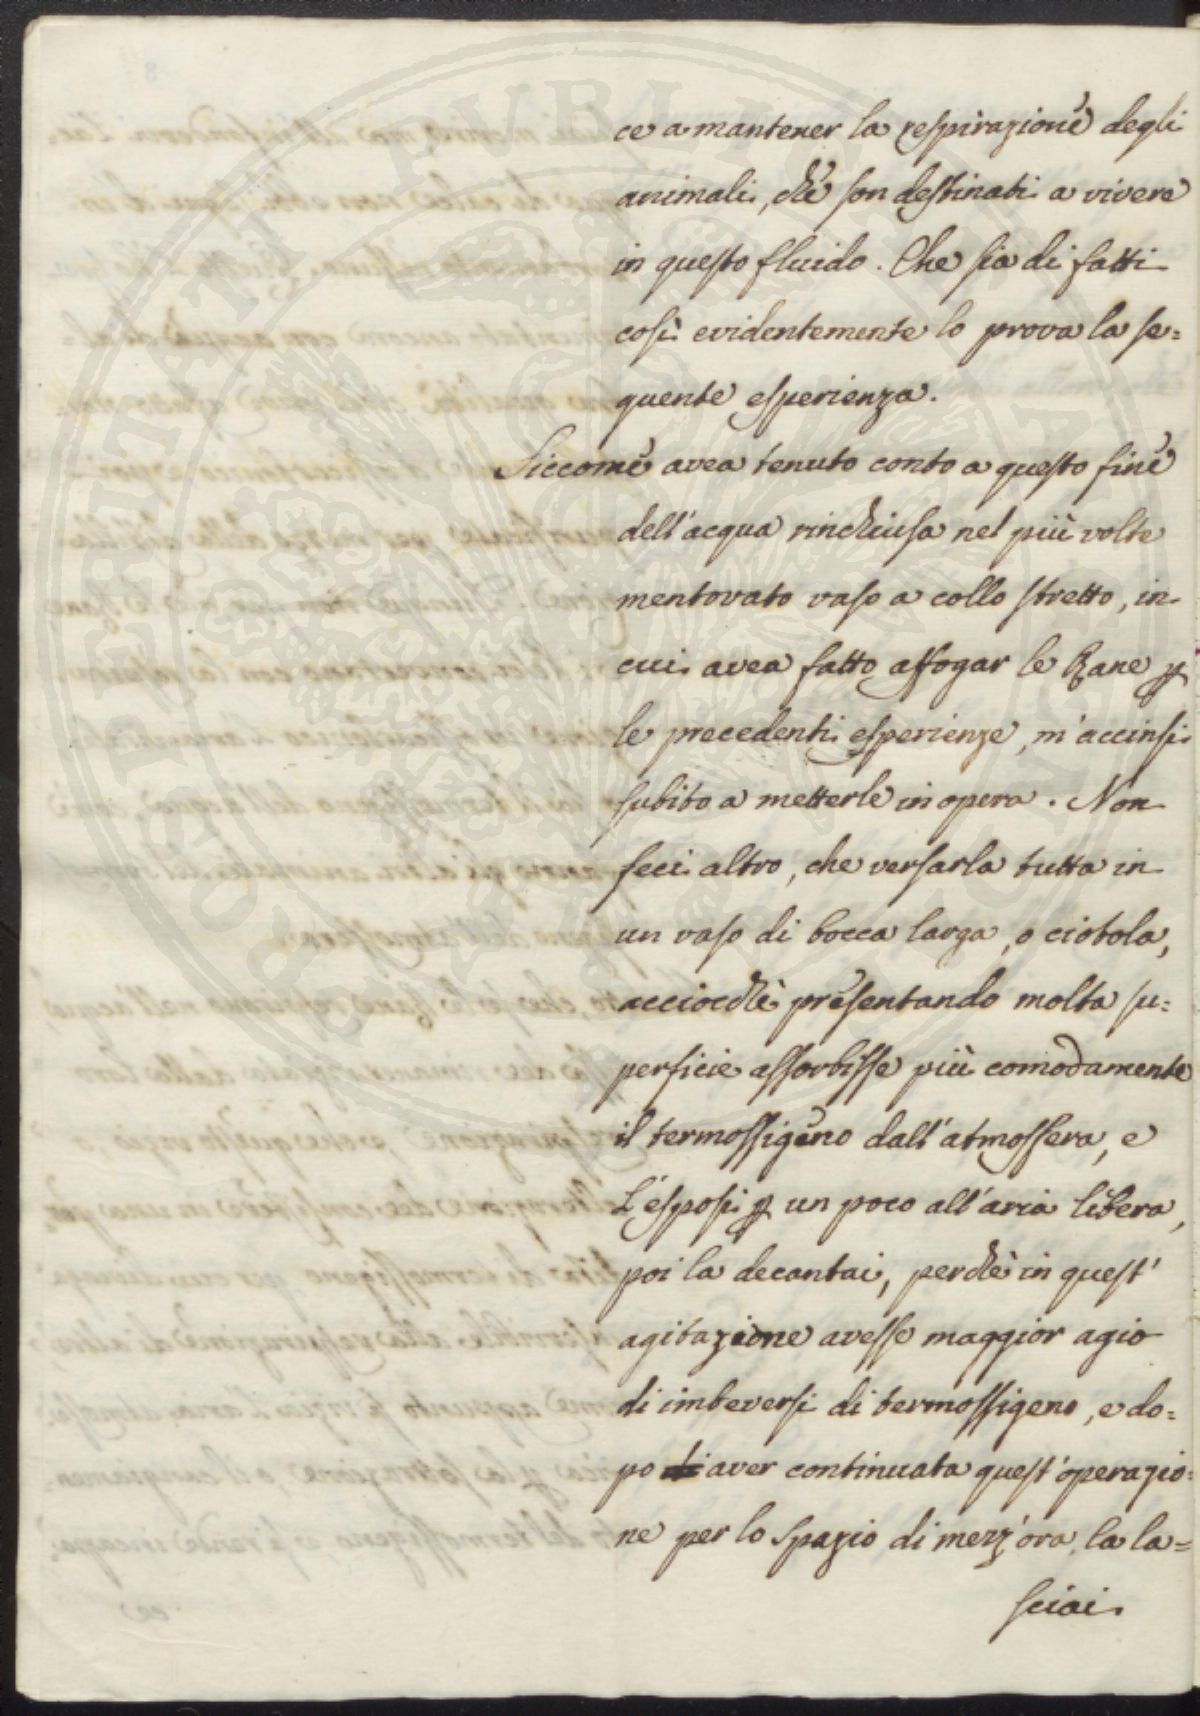 ce a mantener la respirazione degli
animali, che son destinati a vivere
in questo fluido. Che sia di fatti
così evidentemente lo prova la se=
quente esperienza.
Siccome avea tenuto conto a questo fine
dell'acqua rinchiusa nel più volte
mentovato vaso a collo stretto, in
cui avea fatto affogar le Rane p
le precedenti esperienze, m'accinsi
subito a metterle in opera. Non
feci altro, che versarla tutta in
un vaso di bocca larga, o ciotola,
acciocchè presentando molta su=
perficie assorbisse più comodamente
il termossigeno dall'atmosfera, e
L'esposi p un poco all'aria libera,
poi la decantai, perchè in quest'
agitazione avesse maggior agio
di imbeversi di termossigeno, e do=
po aver continuata quest'operazio=
ne per lo spazio di mezz'ora, la la=
sciai